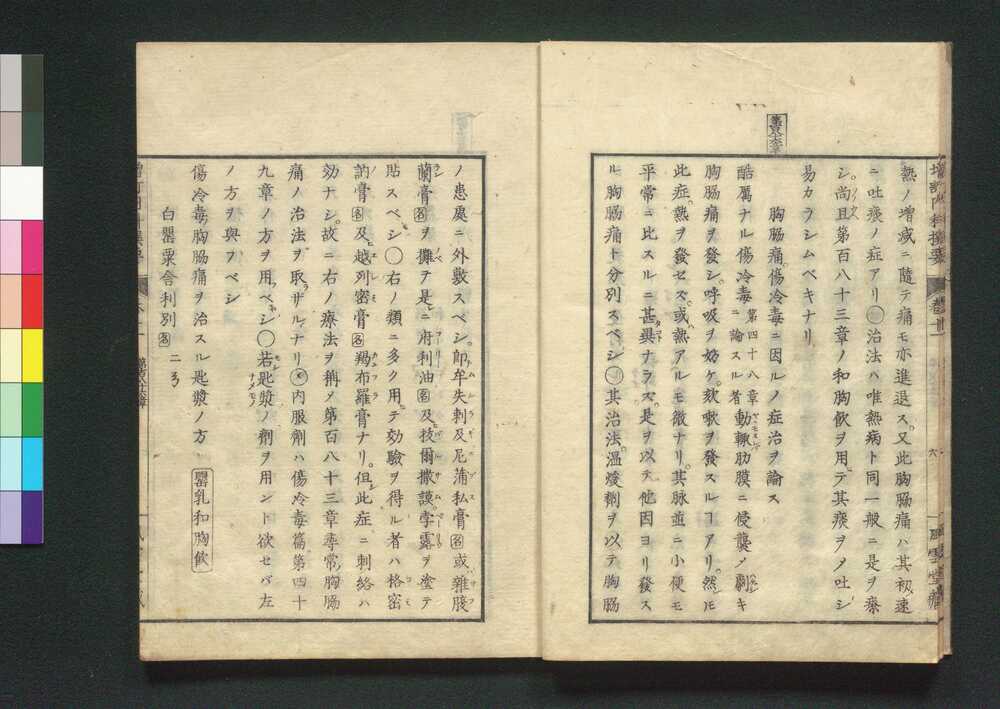 熱ノ増減ニ隨テ痛モ亦進退ス。又此胸膓痛ハ其初速
ニ吐痰ノ症アリ○治法ハ唯熱病ト同一般ニ是ヲ療
シ。尚且第百八十三章ノ和胸飲ヲ用テ其痰ヲ〆吐シ
易カラシムベキナリ
胸膓痛傷冷毒ニ因ルノ症治ヲ論ス
酷厲ナル傷冷毒第四十八章ニ論スル者動輒肋膜ニ侵襲〆劇キ
胸膓痛ヲ發シ。呼吸ヲ妨ケ。欬嗽ヲ發スルヿアリ。然𪜈
此症。熱ヲ發セズ。或熱アルモ微ナリ。其脉並ニ小便モ
平常ニ比スルニ甚異ナラズ。是ヲ以テ他因ヨリ發ス
ル胸膓痛ト分別スベシ○其治法。温煖劑ヲ以テ胸膓
ノ患處ニ外敷スベシ。即牟失刺及尼蒲私膏名或雜腹
蘭膏名ヲ攤テ是ニ府利油名及抜爾撒謨孛露ヲ塗テ
貼スベシ○右ノ類ニ多ク用テ効驗ヲ得ル者ハ格密
訥膏名及越列密膏名羯布羅膏ナリ。但此症ニ刺絡ハ
効ナシ。故ニ右ノ療法ヲ稱〆第百八十三章尋常ノ胸膓
痛ノ治法ヲ取ザルナリ○内服劑ハ傷冷毒篇第四十
九章ノ方ヲ用ベシ○若匙漿ノ劑ヲ用ント欲セバ左
ノ方ヲ與フベシ
傷冷毒胸膓痛ヲ治スル匙漿ノ方 罌乳和胸飲
白罌粟舎利別名 二ゟ